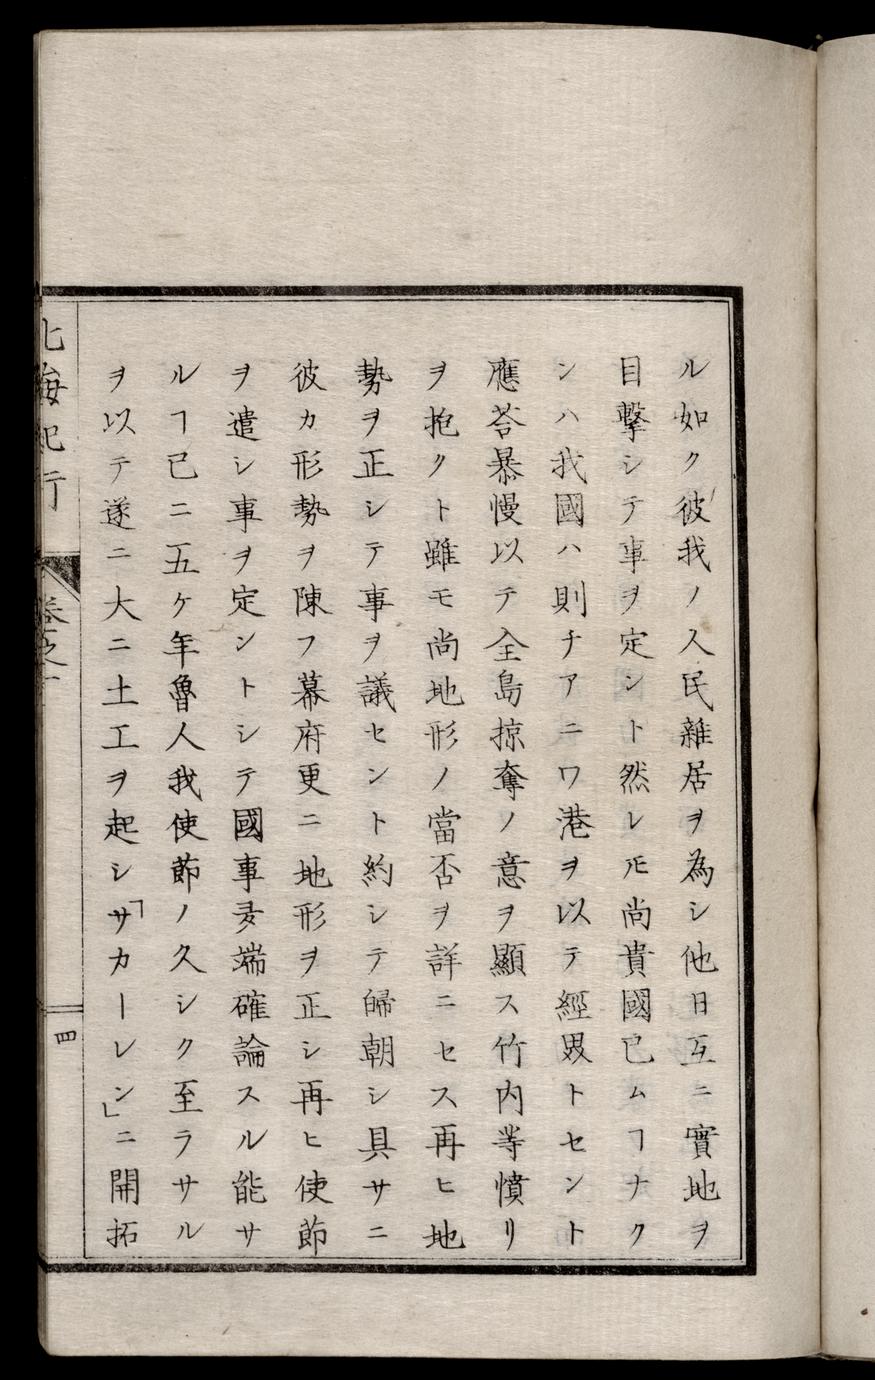 ル如ク彼我ノ人民雜居ヲ為シ他日互ニ實地ヲ
目撃シテ事ヲ定ント然レ𪜈尚貴國已ムヿナク
ンハ我國ハ則チアニワ港ヲ以テ經界トセント
應荅暴慢以テ全島掠奪ノ意ヲ顯ス竹内等憤リ
ヲ抱クト雖モ尚地形ノ當否ヲ詳ニセス再ヒ地
勢ヲ正シテ事ヲ議セント約シテ皈朝シ具サニ
彼カ形勢ヲ陳フ幕府更ニ地形ヲ正シ再ヒ使節
ヲ遣シ事ヲ定ントシテ國事多端確論スル能サ
ルヿ已ニ五ケ年魯人我使節ノ久シク至ラサル
ヲ以テ遂ニ大ニ土工ヲ起シ「サカーレン」ニ開拓
北海紀行 卷之一 四